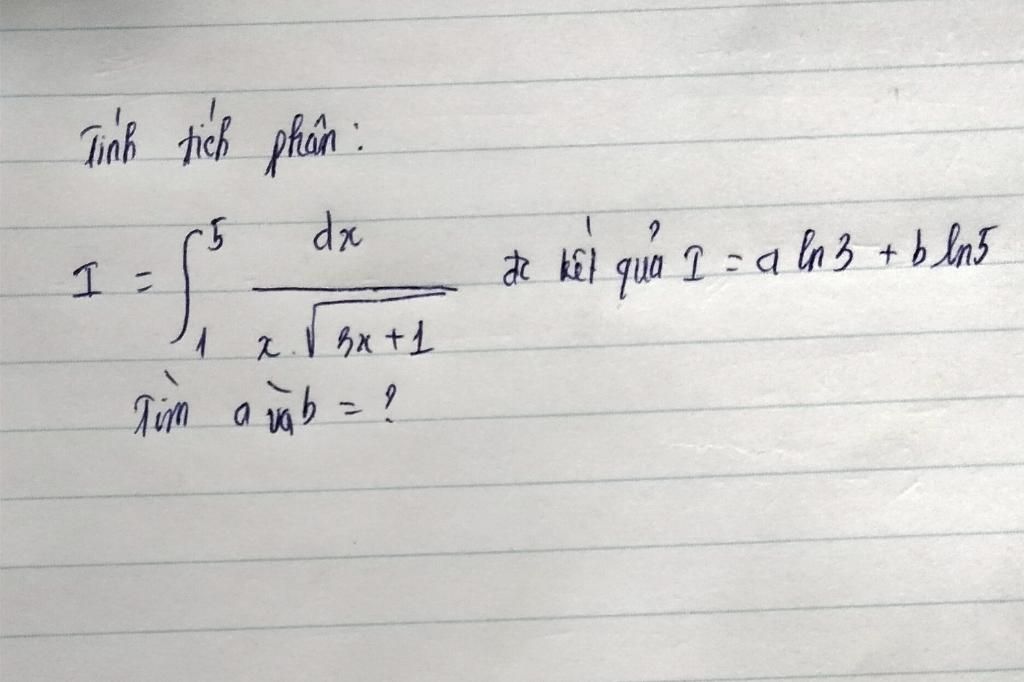 Tính tích phân:
I = ∫₁⁵ dx / (x.√(3x+1)) đc kết quả I = a ln3 + b ln5
Tìm a và b = ?